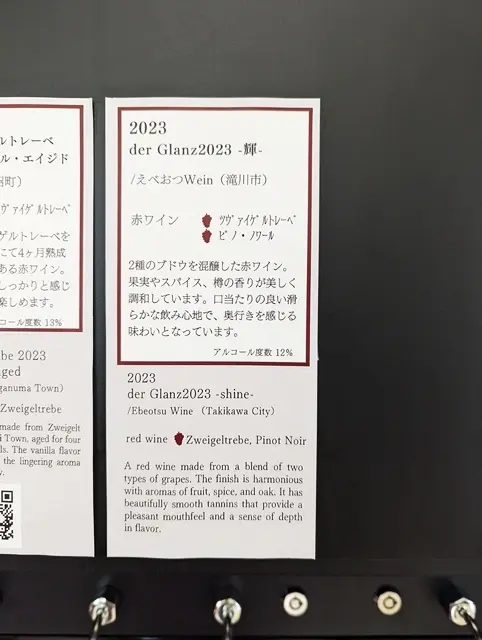 ルトレーベ
ル・エイジド
町）
ヴァイゲルトレーベ
ゲルトレーベを
にて4ヶ月熟成
ある赤ワイン。
しっかりと感じ
楽しめます。
コール度数 13%
be 2023
ged
ganuma Town）
Zweigeltrebe
made from Zweigelt
Town, aged for four
ls. The vanilla flavor
the lingering aroma
y.
2023
der Glanz2023 -輝-
/えべおつWein（滝川市）
赤ワイン ツヴァイゲルトレーベ
ピノ・ノワール
2種のブドウを混醸した赤ワイン。
果実やスパイス、樽の香りが美しく
調和しています。口当たりの良い滑
らかな飲み心地で、奥行きを感じる
味わいとなっています。
アルコール度数 12%
2023
der Glanz2023 -shine-
/Ebeotsu Wine （Takikawa City）
red wine Zweigeltrebe, Pinot Noir
A red wine made from a blend of two
types of grapes. The finish is harmonious
with aromas of fruit, spice, and oak. It has
beautifully smooth tannins that provide a
pleasant mouthfeel and a sense of depth
in flavor.